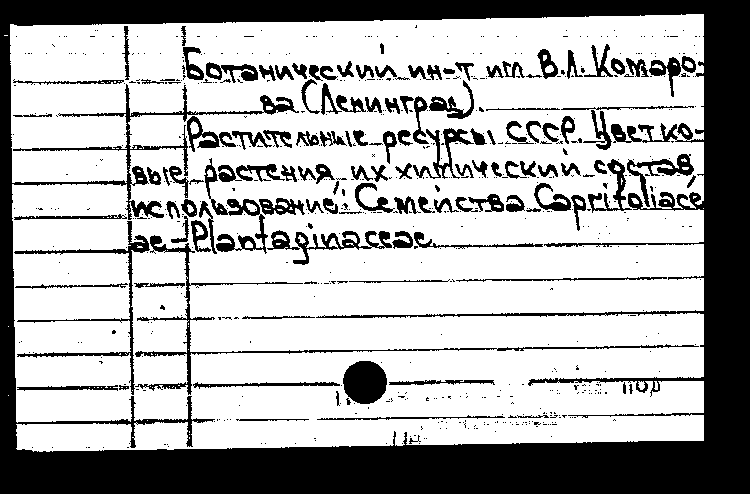 Ботанический ин-т им. В.Л. Комаро-
ва (Ленинград).
Растительные ресурсы СССР. Цветко-
вые растения их химический состав
использование: Семейства Caprifoliacé
ae-Plantaginaceae
под